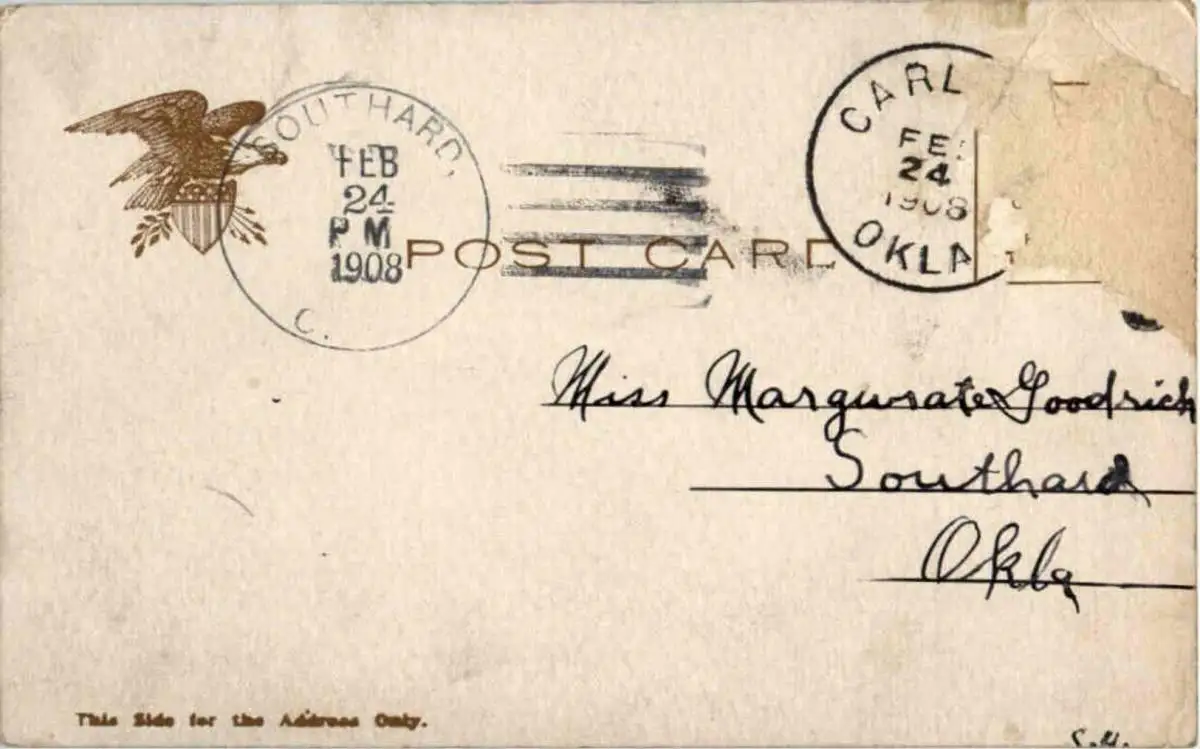 SOUTHARD,
FEB
24
PM
1908
C.
CARL
FE
24
1908
OKLA
POST CARD
Miss Margurate Goodrich
Southard
Okla
This Side for the Address Only.
S.H.